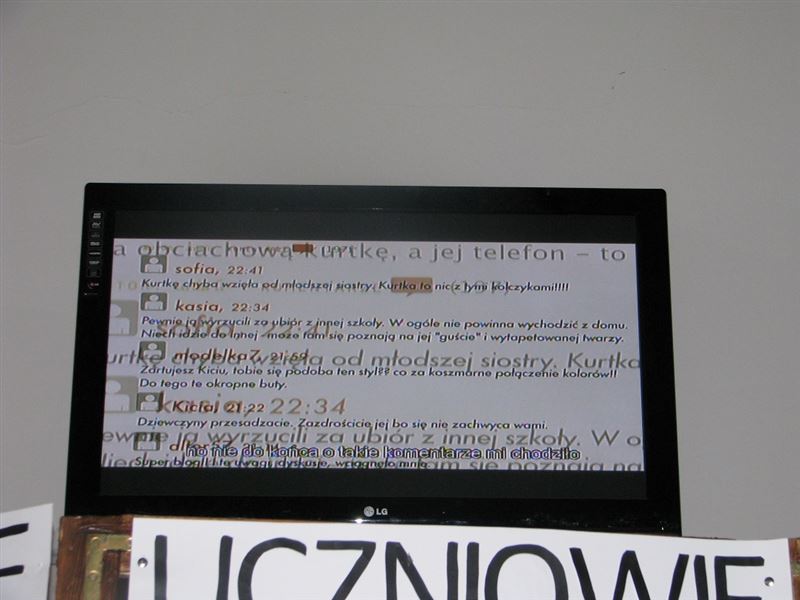 a obciachową kurtkę, a jej telefon – to
sofia, 22:41
Kurtkę chyba wzięła od młodszej siostry. Kurtka to nic z tymi kolczykami!!!!
kasia, 22:34
sofia, 22:41
Pewnie ją wyrzucili za ubiór z innej szkoły. W ogóle nie powinna wychodzić z domu.
Niech idzie do innej - może tam się poznają na jej "guście" i wytapetowanej twarzy.
modelka7, 21:59
kurtkę chyba wzięła od młodszej siostry. Kurtka
Żartujesz Kiciu, tobie się podoba ten styl?? co za koszmarne połączenie kolorów!!
Do tego te okropne buty.
Kicia, 21:22
kasia, 22:34
Dziewczyny przesadzacie. Zazdrościcie jej bo się nie zachwyca wami.
ewnie ją wyrzucili za ubiór z innej szkoły. W o
no nie do końca o takie komentarze mi chodziło
Super blog!! I te uwagi, dyskusje, wciągnęło mnie.
am się poznają na
LG
UCZNIOWIE